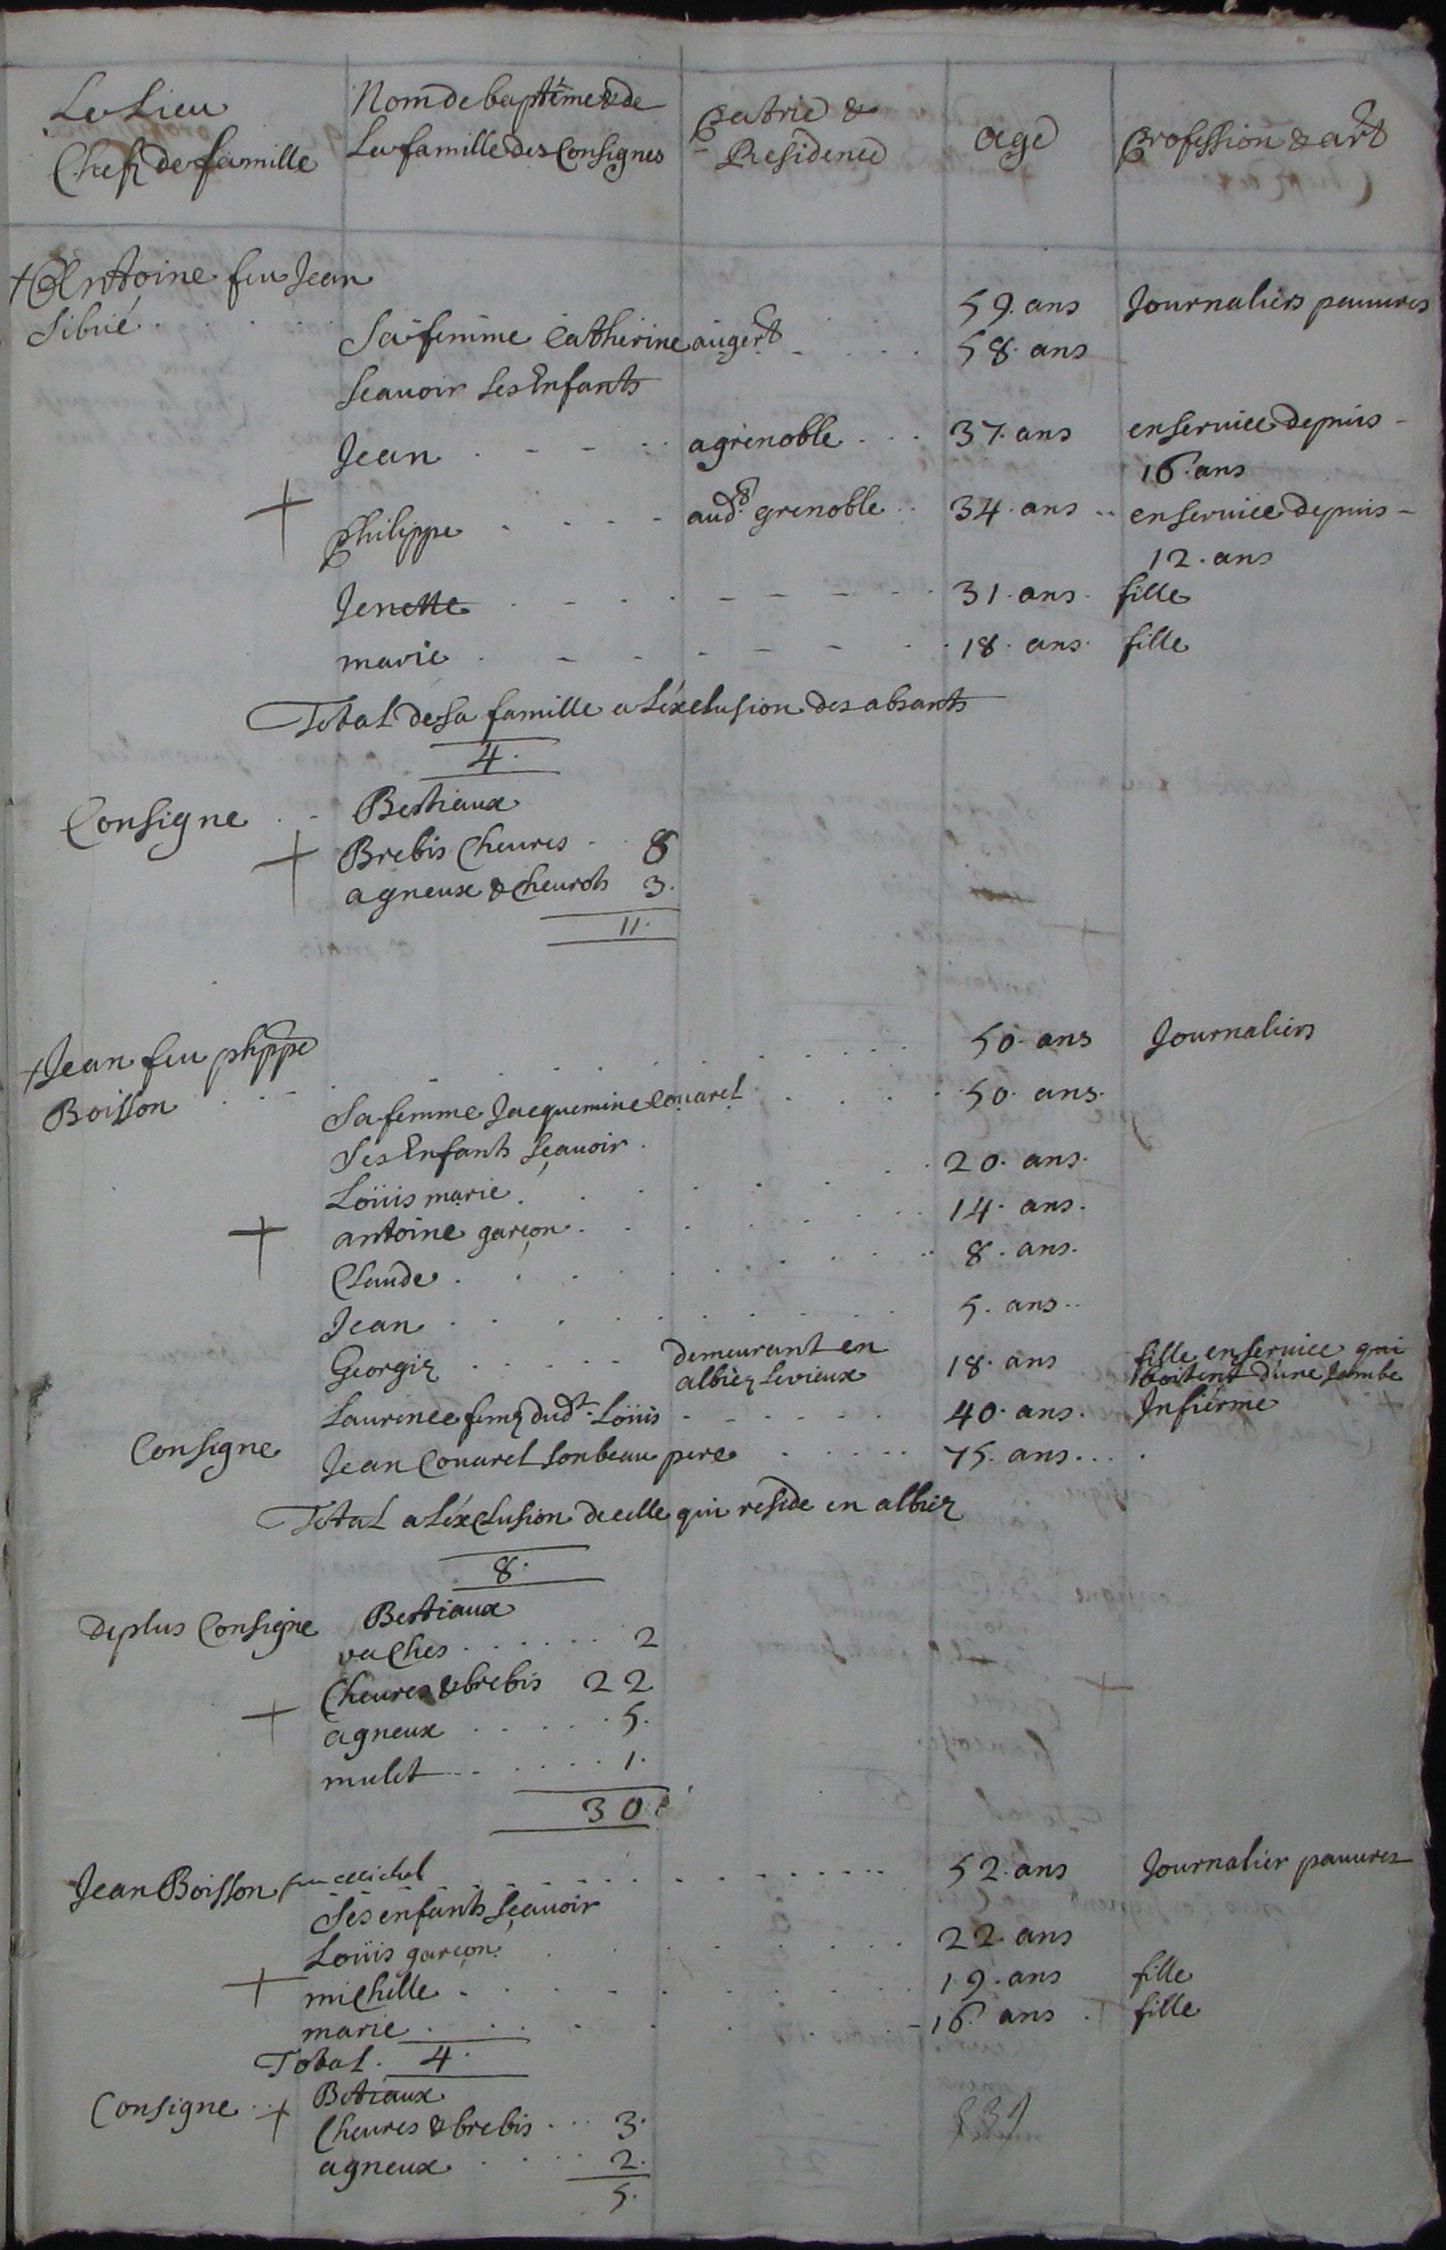 Le Lieu
Chefz de famille
Nom de baptême & de
La famille des Consignes
Patrie &
Residence
age
profession & art
+ Antoine feu Jean
Sibué . . . . . 59. ans Journaliers pauures
Sa femme Catherine augert . . . 58. ans
Scauoir ses Enfants
Jean . . . . agrenoble . . . 37. ans en seruice depuis
16. ans
+ philippe . . . . aud. grenoble . . 34. ans .. en seruice depuis
12. ans
Jenette . . . . . . 31. ans. fille
marie . . . . . . 18. ans. fille
Total de sa famille a L'éxclusion des absants
4.
Consigne . . Bestiaux
+ Brebis Cheures . . 8
agneux & cheurots 3.
11.
+ Jean feu phppe . . . . . 50. ans Journaliers
Boisson . . .
Sa femme Jacquemine Couarel . . . . 50. ans.
Ses Enfants sçauoir .
Loüis marié . . . . . 20. ans.
+ antoine garçon . . . . . 14. ans.
Claude . . . . . 8. ans.
Jean . . . . . 5. ans..
Georgiz . . . . . demeurant en
albiez Levieux 18. ans fille en seruice qui
boitent d'une Jambe
Laurence femz dudt. Loüis . . . . 40. ans. Infiérme
Consigne Jean Couarel son beau pere . . . . 75. ans . . . .
Total a L'éxClusion de celle qui reside en albiez
8.
Deplus Consigne Bestiaux
vaChes . . . . . . 2
+ Cheures & brebis 22
agneux . . . . . 5.
mulet . . . . . 1.
30.
Jean Boisson feu Michel . . . . . 52. ans Journalier pauures
Ses enfants sçauoir
Loüis garçon . . . . . 22. ans
+ miChelle . . . . . 19. ans fille
marie . . . . . 16. ans . fille
Total. 4.
Consigne . . + Betiaux
Cheures & brebis . . . 3.
agneux . . . . 2.
5.